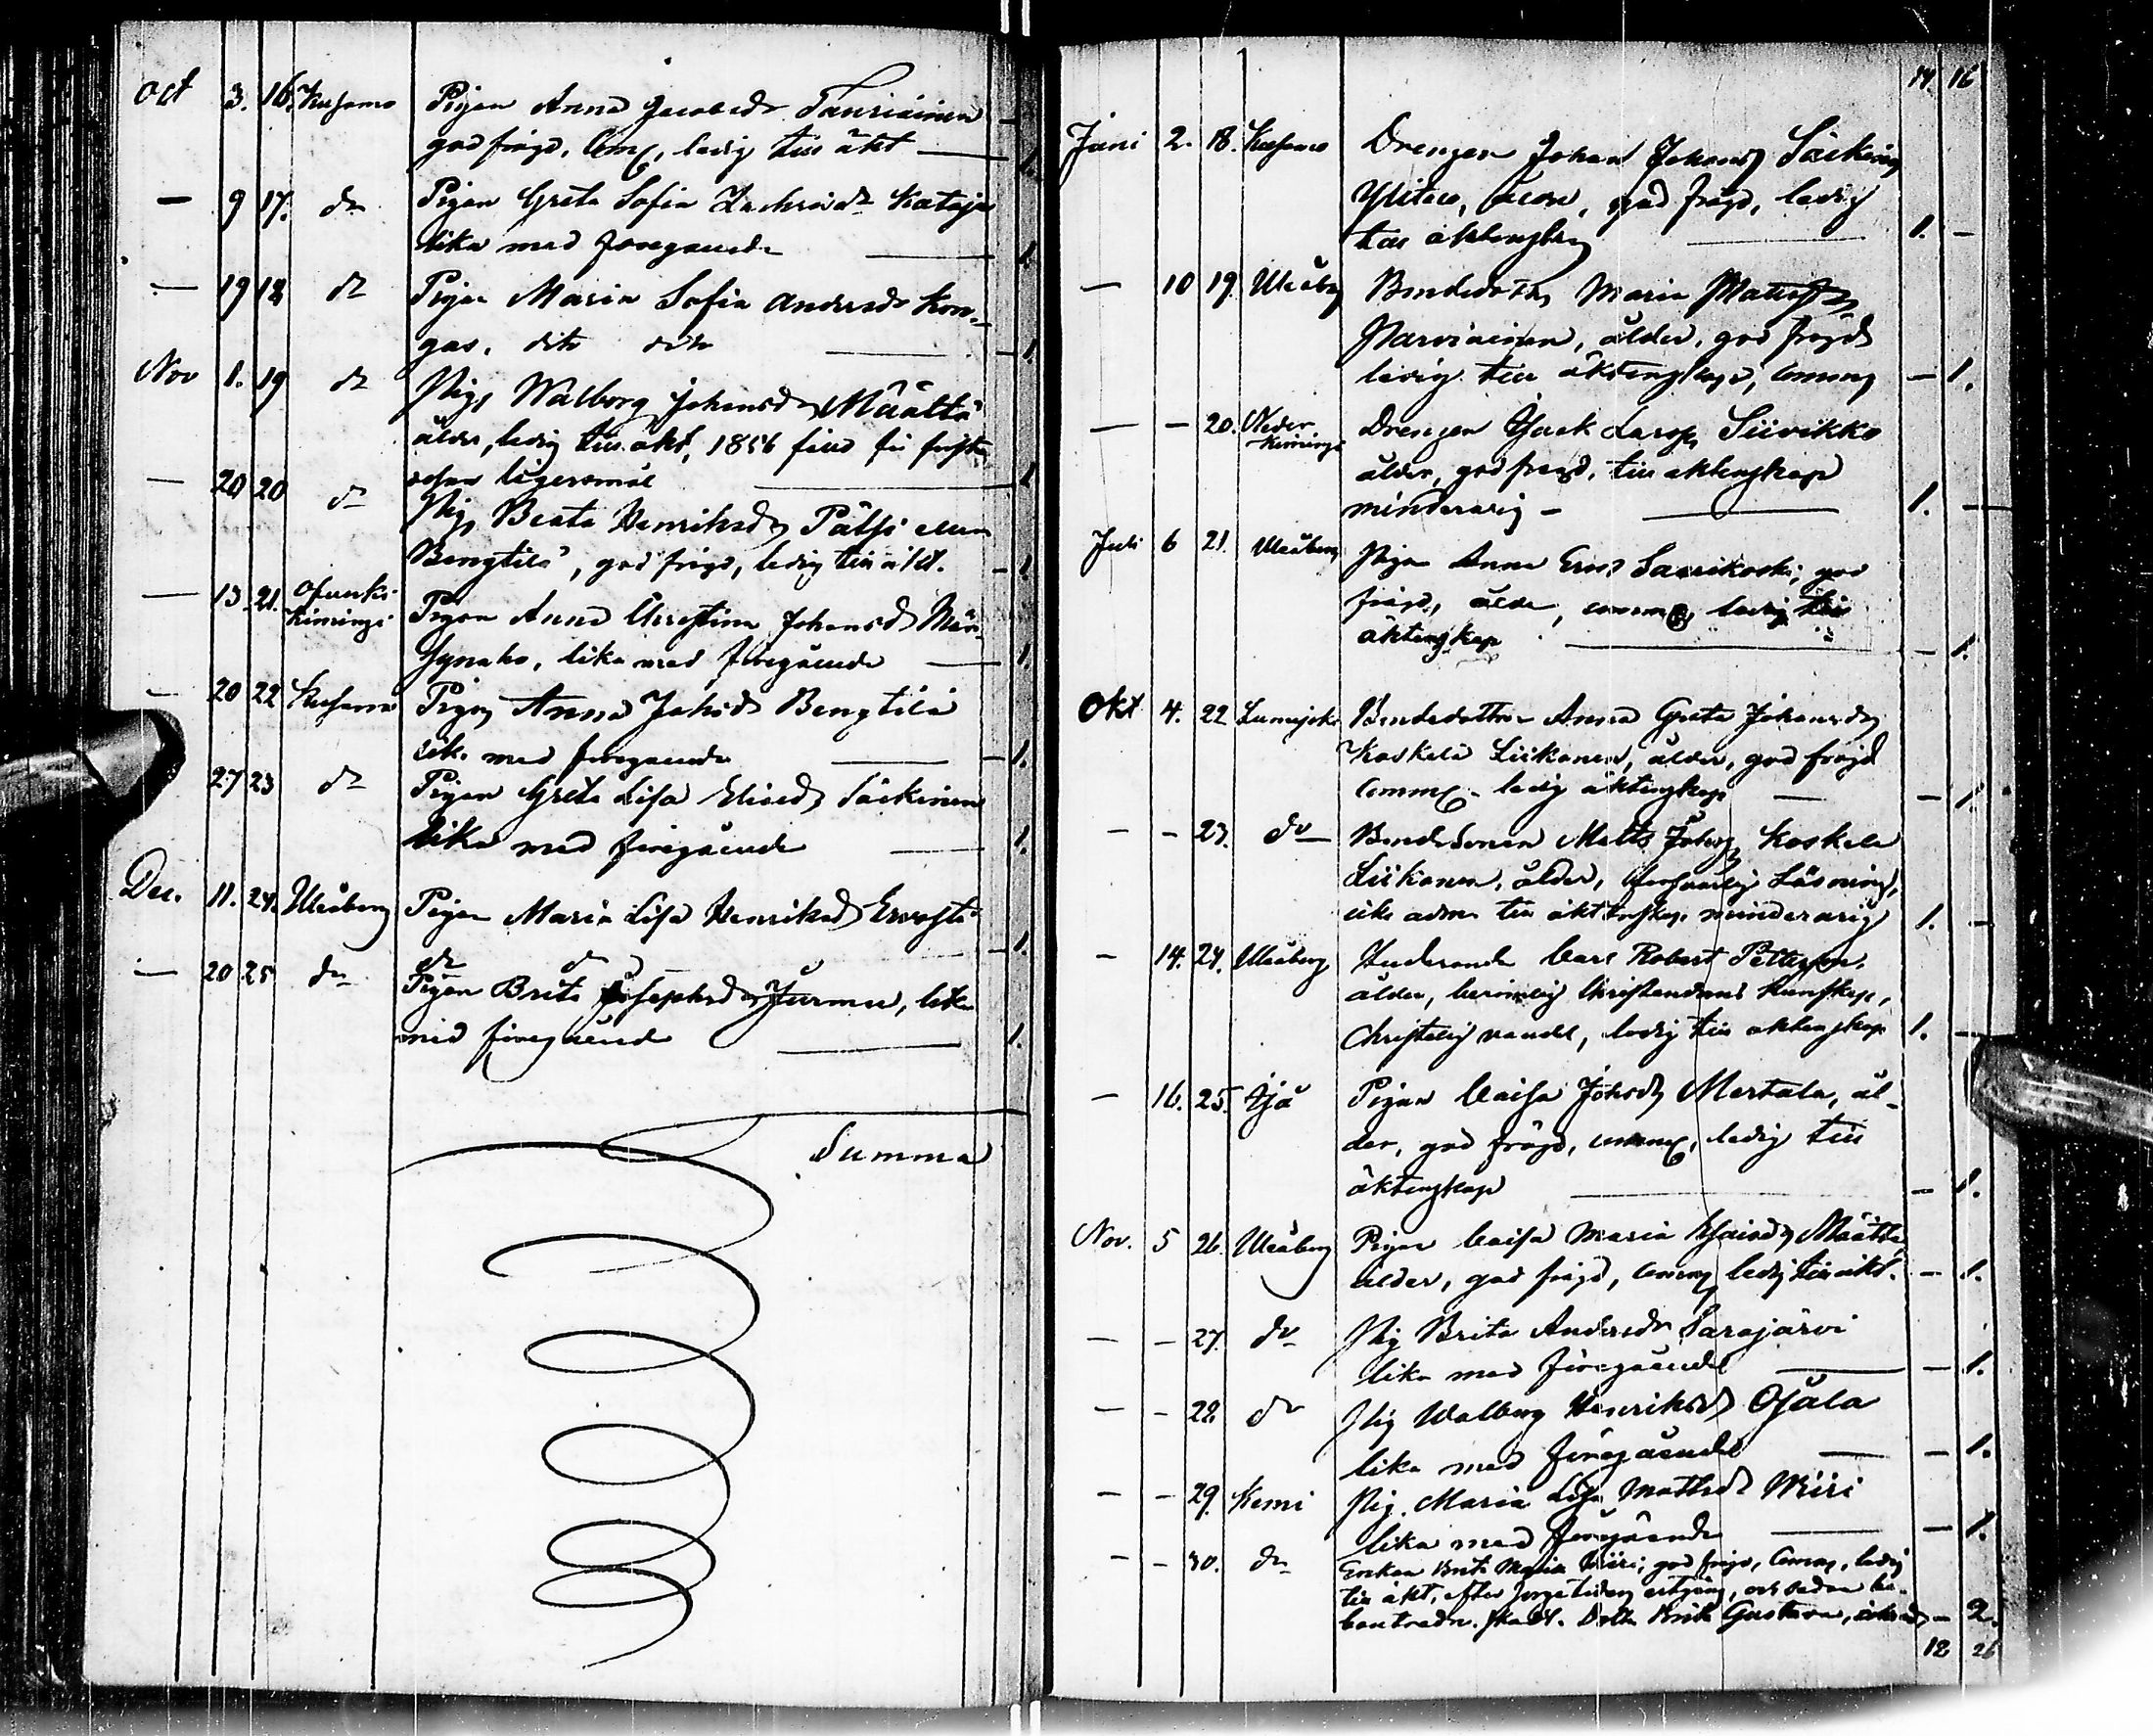 Oct 3. 16. Kusamo Pigan Anna Jacobsdr Tauriainen
god frägd, Com, ledig till äkt — 1.
— 9 17. do Pigan Greta Sofia Zachriadr Kataja
lika med föregående — 1.
— 19 18 do Pigan Maria Sofia Andersdr Kon-
gas, dito dito — 1.
Nov 1. 19 do Pig, Walborg Johansdr Määttä
ålder, ledig till äkt, 1856
lägersmål — 1
— 20 20 do Pig, Beata Henriksdr Pätsi eller
Bengtilä, god frägd, ledig till äkt. — 1
— 13 21. Kiminge Pigan Anna Christina Johansd
lika med föregående — 1.
— 20 22 Kusamo Pigan Anna Johsdr Bengtilä
lik. med föregående — 1.
27 23 do Pigan Greta Lisa Eliasdr Säckinen
lika med föregående — 1.
Dec. 11. 24. Uleåborg Pigan Maria Lisa Henriksd Ervasti
do do — 1.
— 20 25 do Pigan Brita Josephsdr Jurmu, lika
med föregående — 1.
Summa
14. 16
Juni 2. 18. Kusamo Drengen Johan Johans Säckinen
ålder, god frägd, ledig
till äktenskap — 1. —
— 10 19. Uleåborg Bondedottr Maria Mattsdr
Parviainen, ålder, god frägd
ledig till äktenskap, Comm — 1.
— — 20. Neder Kiminge Drengen Isack Larss Siivikko
ålder, god frägd, till äktenskap
minderårig — 1. —
Juli 6 21. Uleåborg Pigan Anna Ersd Saarikoski, god
frägd, ålder, comm, ledig till
äktenskap — 1.
Okt 4. 22 Lumijoki Bondedottren Anna Greta Johansdr
Koskela Liikanen, ålder, god frägd
Comm. ledig äktenskap — — 1.
— — 23. do Bondesonen Matts Johss Koskela
Liikanen, ålder, försvarlig Läsning,
till äktenskap minderårig 1. —
— 14. 24. Uleåborg Carl Robert Petterson.
ålder, berömlig Christendoms kunskap,
Christelig vandel, ledig till äktenskap 1. —
— 16. 25. Ijå Pigan Caisa Johsdr Mertala, ål-
der, god frägd, comm, ledig till
äktenskap — — 1.
Nov. 5 26. Uleåborg Pigan Caisa Maria Isaksdr Määttä,
ålder, god frägd, Comm, ledig till äkt. — 1.
— — 27. do Pig Brita Andersdr Sarajärvi
lika med föregående — — 1.
— — 28. do Pig Walborg Henriksdr Ojala
lika med föregående — — 1.
— — 29. Kemi Pig. Maria Lisa Mattsdr Wiiri
lika med föregående — — 1.
— — 30. do Enkan Brita Maria Wiiri; god frägd, Comm, ledig
till äkt, efter sorgetidens utgång, och sedan
Dottr Brita Gustava, — 2.
12 26